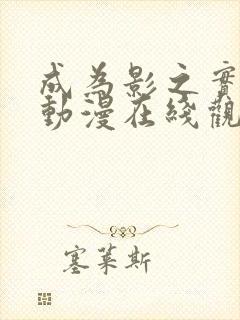 成為影之實
動漫在綫觀
塞萊斯